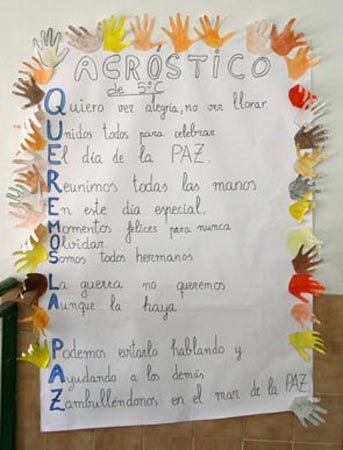 ACRÓSTICO
de 5ºC
Quiero ver alegría, no ver llorar.
Unidos todos para celebrar
El día de la PAZ.
Reunimos todas las manos
En este día especial.
Momentos felices para nunca
Olvidar.
Somos todos hermanos
La guerra no queremos
Aunque la haya
Podemos evitarlo hablando y
Ayudando a los demás
Zambulléndonos en el mar de la PAZ